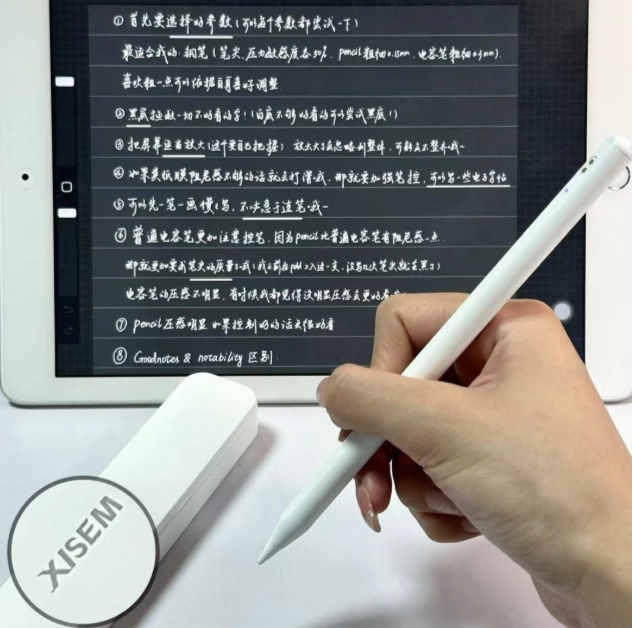 ①首先要选择好参数(可以每个参数都尝试一下)
最适合我的:钢笔(笔尖,压力敏感度各50%,pencil粗细0.15mm,电容笔粗细0.3mm)
喜欢粗一点可以依据自身喜好调整
②黑底拯救一切不好看的字!(白底不够好看的可以尝试黑底!)
③把屏幕适当放大(这个要自己把握)放太大了会忽略到整体,可能会不整齐哦~
④如果类纸膜阻尼感不够的话就会打滑哦,那就要加强笔控,可以写一些电子字帖
⑤可以先一笔一画慢慢写,不必急于连笔哦~
⑥普通电容笔更加注意控笔,因为pencil比普通电容笔有阻尼感一点
那就更加要求笔尖的质量了哦
电容笔的压感不明显,有时候我都觉得没明显压感会更好看
⑦pencil压感明显如果控制好的话会很好看
⑧Goodnotes & notability 区别
XISEM